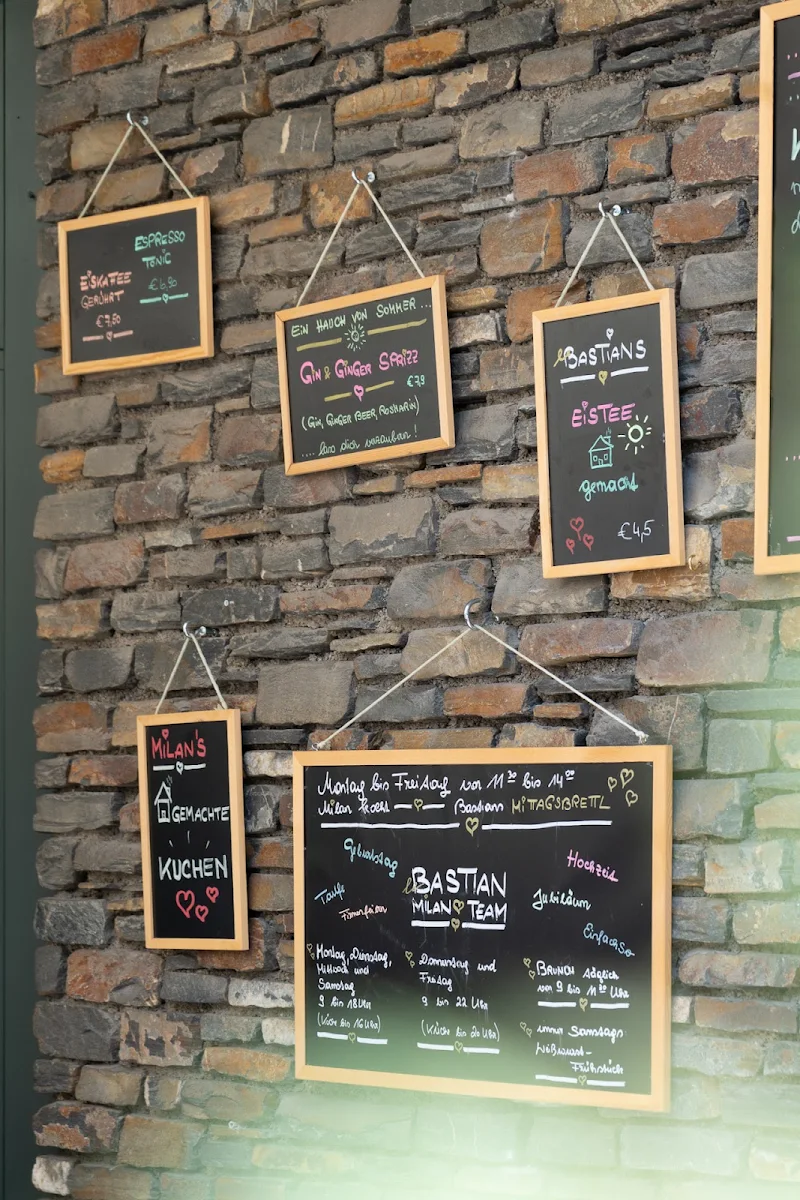 ESPRESSO
TONIC
€6,90
EISKAFFEE
GERÜHRT
€7,50
EIN HAUCH VON SOMMER...
GIN & GINGER SPRIZZ
€7,9
(GIN, GINGER BEER, ROSMARIN)
... lass dich verzaubern!
BASTIANS
EISTEE
gemacht
€4,5
MILAN'S
GEMACHTE
KUCHEN
Montag bis Freitag von 11³⁰ bis 14⁰⁰
Milan kocht Bastians MITTAGSBRETTL
Geburtstag
Hochzeit
Taufe
Firmenfeiern
BASTIAN
MILAN TEAM
Jubiläum
Einfach so
Montag, Dienstag,
Mittwoch und
Samstag
9 bis 18 Uhr
(Küche bis 16 Uhr)
Donnerstag und
Freitag
9 bis 22 Uhr
(Küche bis 20 Uhr)
BRUNCH täglich
von 9 bis 11³⁰ Uhr
immer Samstags
Weißwurst-
Frühstück